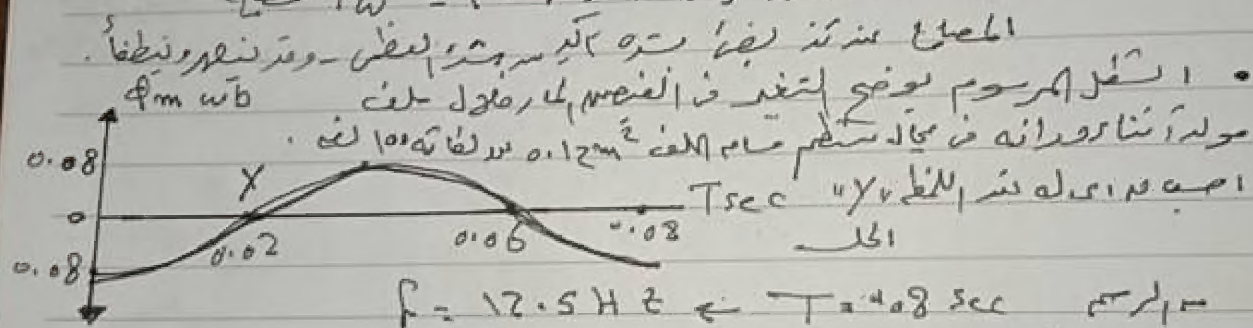 المصباح عندئذ يضئ بشدة أكبر من شدته العظمى - وقد ينصهر وينطفأ.
• الشكل المرسوم يوضح التغير فى الفيض المار خلال ملف
مولد أثناء دورانه فى مجال منتظم مساحة اللف 0.12m² عدد لفاته 100 لفه.
احسب ق.د.ك له عند اللحظة "y"
الحل
φm wb
0.08
X
0
0.02
0.06
0.08
T sec
0.08
من الرسم T = 0.08 sec ⇐ f = 12.5 Hz